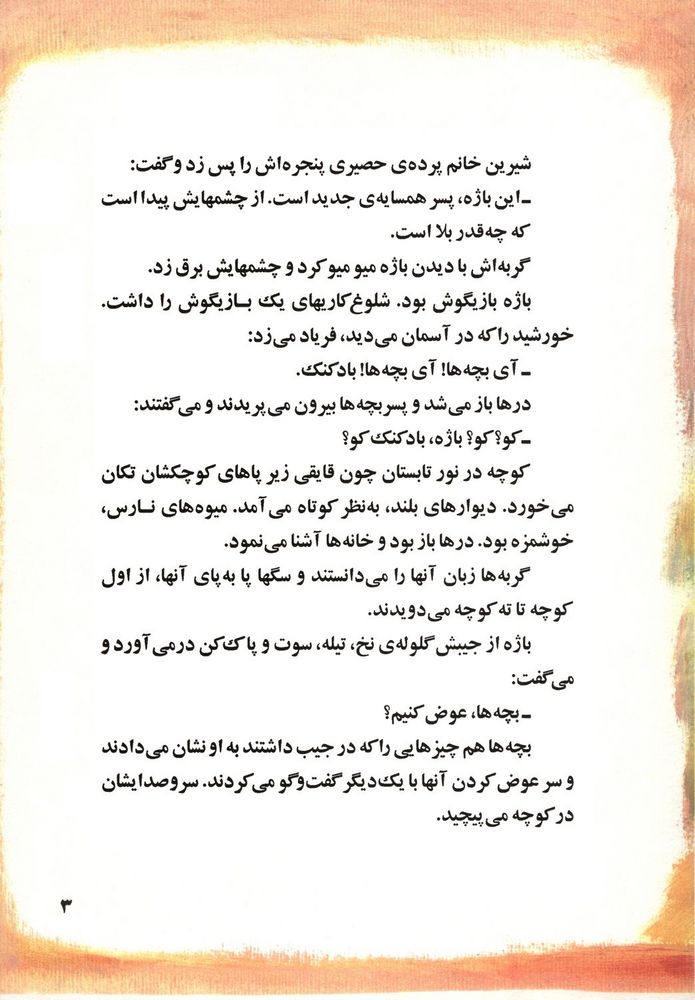 شیرین خانم پرده‌ی حصیری پنجره‌اش را پس زد و گفت:
ـ این باژه، پسر همسایه‌ی جدید است. از چشمهایش پیدا است
که چه‌قدر بلا است.
گربه‌اش با دیدن باژه میو میو کرد و چشمهایش برق زد.
باژه بازیگوش بود. شلوغ‌کاریهای یک بـازیگوش را داشت.
خورشید را که در آسمان می‌دید، فریاد می‌زد:
ـ آی بچه‌ها! آی بچه‌ها! بادکنک.
درها باز می‌شد و پسربچه‌ها بیرون می‌پریدند و می‌گفتند:
ـ کو؟ کو؟ باژه، بادکنک کو؟
کوچه در نور تابستان چون قایقی زیر پاهای کوچکشان تکان
می‌خورد. دیوارهای بلند، به‌نظر کوتاه می‌آمد. میوه‌های نـارس،
خوشمزه بود. درها باز بود و خانه‌ها آشنا می‌نمود.
گربه‌ها زبان آنها را می‌دانستند و سگها پا به‌پای آنها، از اول
کوچه تا ته کوچه می‌دویدند.
باژه از جیبش گلوله‌ی نخ، تیله، سوت و پاک‌کن درمی‌آورد و
می‌گفت:
ـ بچه‌ها، عوض کنیم؟
بچه‌ها هم چیزهایی را که در جیب داشتند به او نشان می‌دادند
و سر عوض کردن آنها با یک‌دیگر گفت‌وگو می‌کردند. سروصدایشان
در کوچه می‌پیچید.
۳